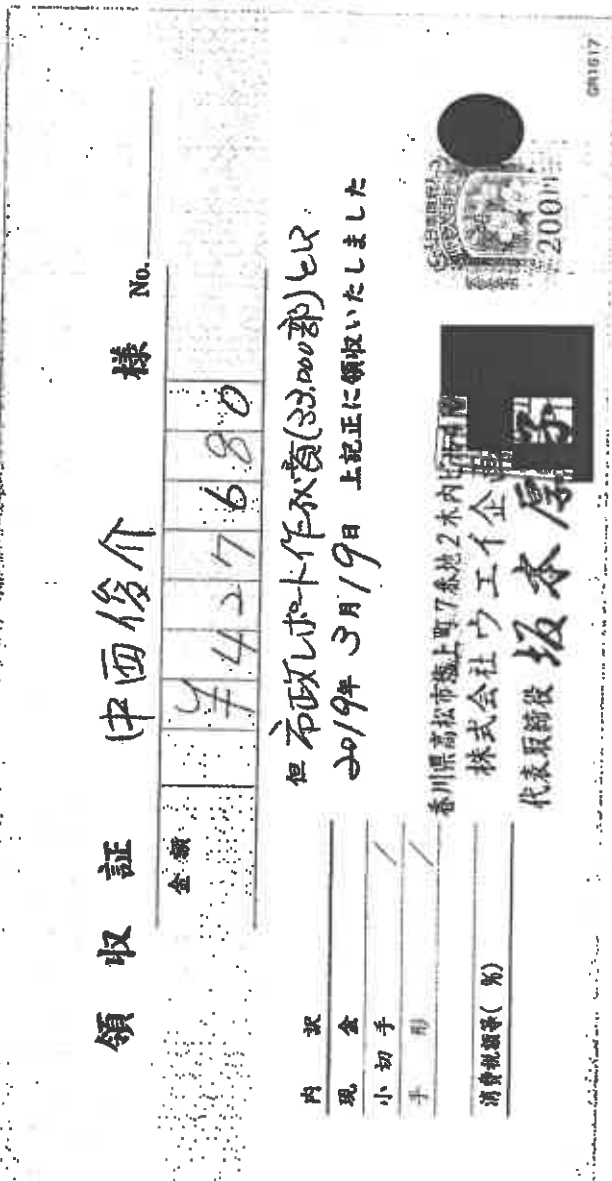 領収証
仲西俊介 様 No.
金額 ¥427680
但 市政レポート作成費(33,000部)として
2019年 3月19日 上記正に領収いたしました
内訳
現金
小切手 /
手形 /
消費税額等( %)
香川県高松市塩上町7番地2木内
株式会社ウエイ企
代表取締役 坂本厚
200円
GR1617